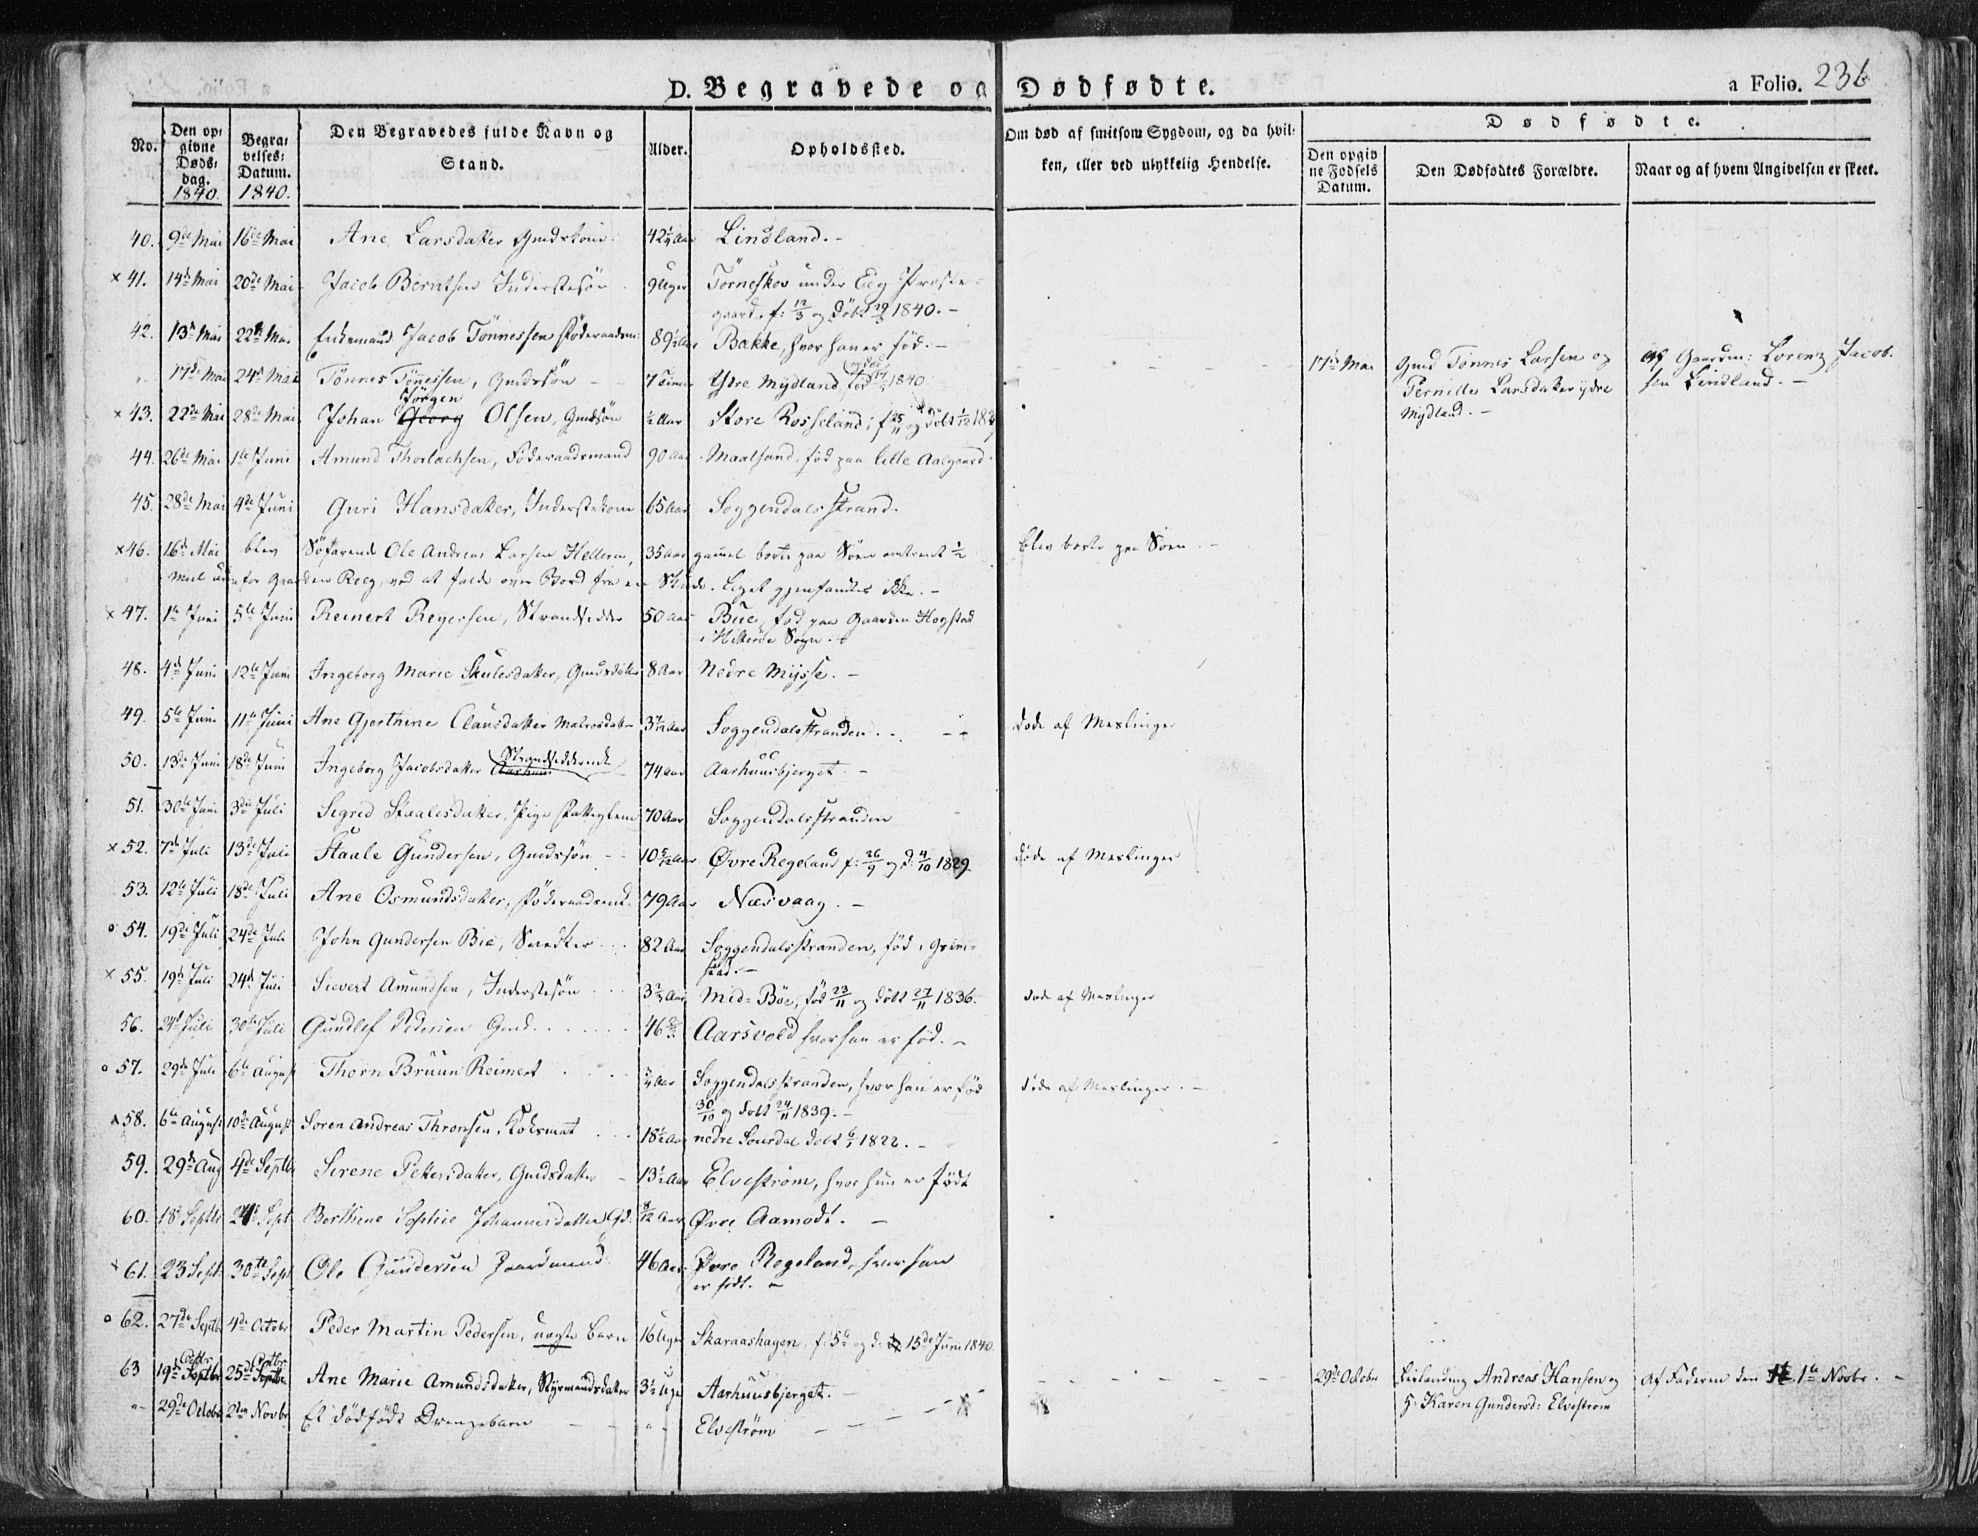 D. Begravede og Dødfødte.
a Folio. 236
No.
Den opgivne Døds-dag. 1840.
Begravelses-Datum. 1840.
Den Begravedes fulde Navn og Stand.
Alder.
Opholdssted.
Om død af smitsom Sygdom, og da hvilken, eller ved ulykkelig Hendelse.
Dødfødte.
Den opgivne Fødsels Datum.
Den Dødfødtes Forældre.
Naar og af hvem Angivelsen er skeet.
40. 9de Mai 16de Mai Ane Larsdatter Gmdskone 42 1/4 Aar Lindland. -
× 41. 14de Mai 20de Mai Jacob Berntsen Inderstesøn 9 Uger Törneskov under Eeg Præste-
gaard, f: 12/3 og döbt 29/3 1840. -
42. 13de Mai 22de Mai Enkemand Jacob Tönnessen Föderaadsm: 89 1/2 Aar Bakke, hvor han er föd. -
" 17de Mai 24de Mai Tönnes Tönnessen, Gmdssön - 7 Timer Ytre Mydland föd 17/5 1840
17de Mai Gmd Tönnes Larsen og Pernille Larsdatter ydre Mydland. -
Af Gaardm: Lorenz Jacobsen Lindland. -
× 43. 22de Mai 28de Mai Johan Georg Jörgen Olsen, Gmdssön 1/2 Aar Store Rosseland, f 25/11 og döbt 1/12 1839
44. 26de Mai 1ste Juni Amund Thorlachsen, Föderaadsmand 90 Aar Maalsand, föd paa lille Aalgaard
45. 28de Mai 4de Juni Guri Hansdatter, Inderstekone 65 Aar Soggendalsstrand.
× 46. 16de Mai blev Söfarende Ole Andreas Larsen Helleren, 35 Aar gammel borte paa Söen omtrent 1/2 blev borte paa Söen. -
Miil udenfor Gaarden Reeg, ved at falde over Bord fra en Skude. Liget gjenfandtes ikke. -
× 47. 1ste Juni 5te Juni Reinert Reyersen, Strandsidder 50 Aar Bue, föd paa Gaarden Hogstad
i Hitteröe Sogn. -
48. 4de Juni 12te Juni Ingeborg Marie Skulesdatter, Gmdsdatter 8 Aar Nedre Mysse. -
49. 5te Juni 11te Juni Ane Gjerthine Clausdatter Matrosdatter Aar Soggendalsstranden. - döde af Meslinger
50. 13de Juni 18de Juni Ingeborg Jacobsdatter Strandsidderenke 74 Aar Aarhuusbjerget. -
51. 30te Juni 3die Juli Sigrid Staalesdatter, Pige Fattiglem 70 Aar Soggendalsstranden
× 52. 7de Juli 13de Juli Staale Gundersen, Gmdssön - 10 Aar Øvre Regeland f: 26/9 og d: 4/10 1829 döde af Meslinger
53. 12te Juli 18de Juli Ane Osmundsdatter, Föderaadsenke 79 Aar Næsvaag. -
o 54. 19de Juli 24de Juli John Gundersen Bie, Snedker 82 Aar Soggendalsstranden, föd i Grim-
stad. -
× 55. 19de Juli 24de Juli Sievert Amundsen, Inderstesön 3 Aar Mid-Böe, föd 23/11 og döbt 27/11 1836. - döde af Meslinger
56. 24de Juli 30te Juli Gundlef Pedersen Gmd. 46 Aarsvold hvor han er föd. -
o 57. 29de Juli 6te August Thorn Bruun Reimert 3/4 Aar Soggendalsstranden, hvor han er föd döde af Meslinger. -
30/10 og döbt 24/11 1839. -
× 58. 6te August 10de August Sören Andreas Thronsen, Koksmat 18 1/2 Aar nedre Sourdal döbt 1822. -
59. 29de Aug 4de Septbr Serene Pettersdatter, Gmdsdatter - 13 1/2 Aar Elveström, hvor hun er födt
60. 18de Septbr 24de Sept Berthine Sophie Johannesdatter Gd. 8/12 Aar Øvre Aamodt. -
× 61. 23 Sept. 30te Sept Ole Gundersen Gaardmand 46 Aar Øvre Regeland, hvor han
er födt. -
o 62. 27de Septbr 4de Octobr Peder Martin Pedersen, uægte Barn 16 Uger Skaraashagen, f: 5te og d: 15de Juni 1840
63 19de Septbr Octbr 25de Septbr Octbr Ane Marie Amundsdatter, Styrmandsdatter 3 1/2 Uge Aarhuusbjerget. -
" 29de Octobr 2den Novbr Et dödfödt Drengebarn - " Elveström -
29de Octobr Andreas Hansen og H: Karen Gundersd: Elveström
Af Faderen den 1ste Novbr. -